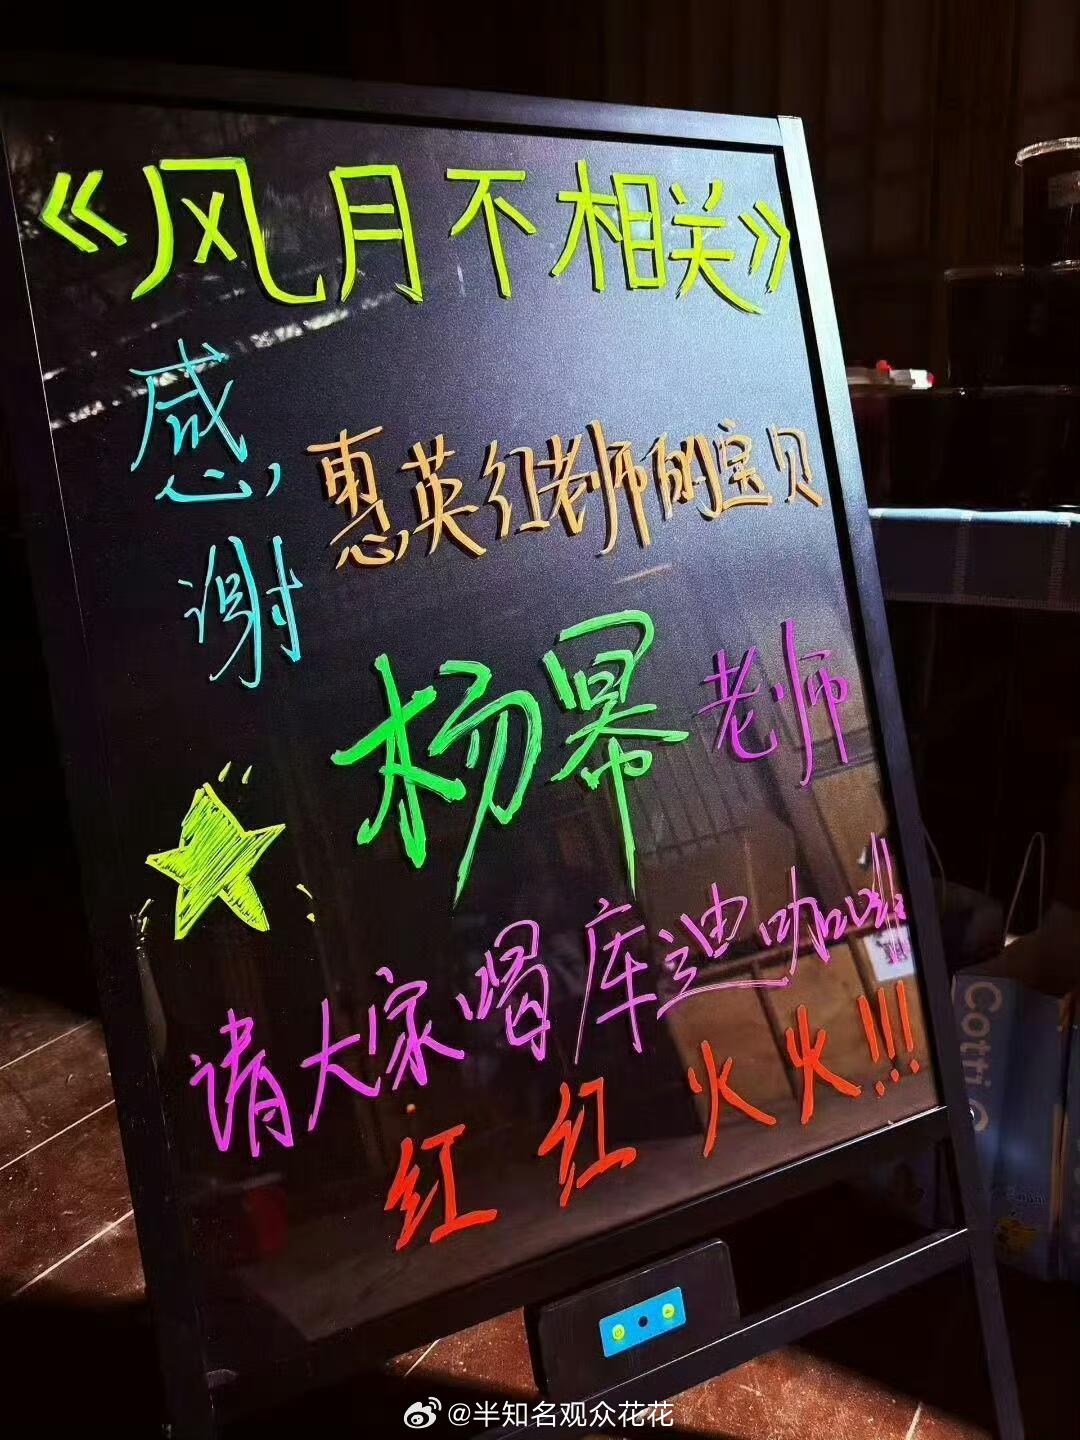 《风月不相关》
感谢
惠英红老师的宝贝
杨幂老师
请大家喝库迪咖啡
红红火火!!!
Cotti C
@半知名观众花花